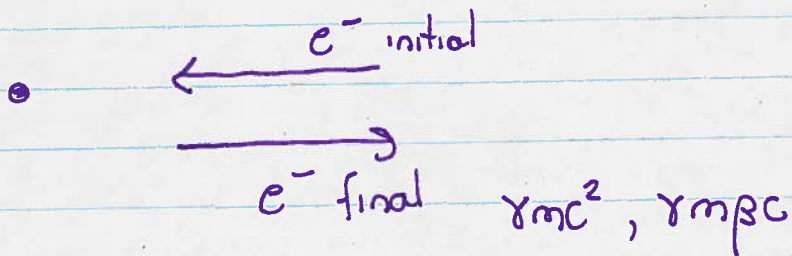 e⁻ initial
e⁻ final γmc², γmβc